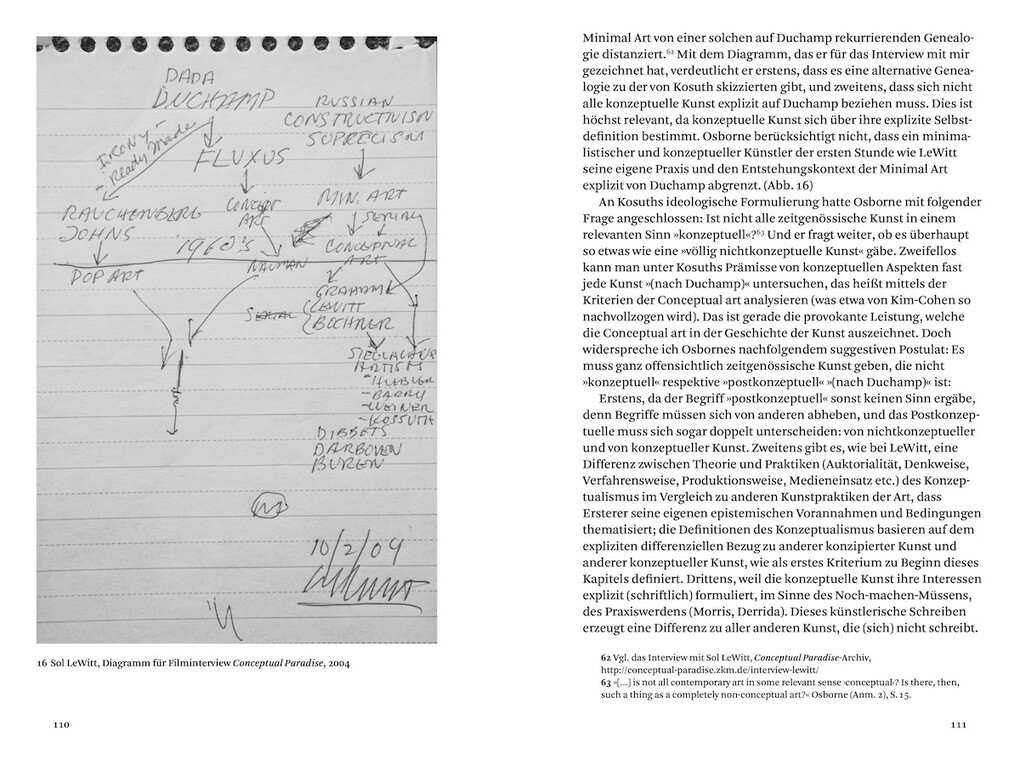 DADA
DUCHAMP
IRONY -
- Ready Made
FLUXUS
RAUCHENBERG
JOHNS
CONCEPT
ART
1960'S
POP ART
NAUMAN
RUSSIAN
CONSTRUCTIVISM
SUPRECISM
MIN. ART
SERIAL
CONCEPTUAL
ART
GRAHAM
LEWITT
BOCHNER
SIEGLAUB
ARTISTS
- HUEBLER
- BARRY
- WEINER
- KOSSUTH
DIBBETS
DARBOVEN
BUREN
10/2/04
16 Sol LeWitt, Diagramm für Filminterview Conceptual Paradise, 2004
110
Minimal Art von einer solchen auf Duchamp rekurrierenden Genealo-
gie distanziert.62 Mit dem Diagramm, das er für das Interview mit mir
gezeichnet hat, verdeutlicht er erstens, dass es eine alternative Genea-
logie zu der von Kosuth skizzierten gibt, und zweitens, dass sich nicht
alle konzeptuelle Kunst explizit auf Duchamp beziehen muss. Dies ist
höchst relevant, da konzeptuelle Kunst sich über ihre explizite Selbst-
definition bestimmt. Osborne berücksichtigt nicht, dass ein minima-
listischer und konzeptueller Künstler der ersten Stunde wie LeWitt
seine eigene Praxis und den Entstehungskontext der Minimal Art
explizit von Duchamp abgrenzt. (Abb. 16)
An Kosuths ideologische Formulierung hatte Osborne mit folgender
Frage angeschlossen: Ist nicht alle zeitgenössische Kunst in einem
relevanten Sinn »konzeptuell«?63 Und er fragt weiter, ob es überhaupt
so etwas wie eine »völlig nichtkonzeptuelle Kunst« gäbe. Zweifellos
kann man unter Kosuths Prämisse von konzeptuellen Aspekten fast
jede Kunst »(nach Duchamp)« untersuchen, das heißt mittels der
Kriterien der Conceptual art analysieren (was etwa von Kim-Cohen so
nachvollzogen wird). Das ist gerade die provokante Leistung, welche
die Conceptual art in der Geschichte der Kunst auszeichnet. Doch
widerspreche ich Osbornes nachfolgendem suggestiven Postulat: Es
muss ganz offensichtlich zeitgenössische Kunst geben, die nicht
»konzeptuell« respektive »postkonzeptuell« »(nach Duchamp)« ist:
Erstens, da der Begriff »postkonzeptuell« sonst keinen Sinn ergäbe,
denn Begriffe müssen sich von anderen abheben, und das Postkonzep-
tuelle muss sich sogar doppelt unterscheiden: von nichtkonzeptueller
und von konzeptueller Kunst. Zweitens gibt es, wie bei LeWitt, eine
Differenz zwischen Theorie und Praktiken (Auktorialität, Denkweise,
Verfahrensweise, Produktionsweise, Medieneinsatz etc.) des Konzep-
tualismus im Vergleich zu anderen Kunstpraktiken der Art, dass
Ersterer seine eigenen epistemischen Vorannahmen und Bedingungen
thematisiert; die Definitionen des Konzeptualismus basieren auf dem
expliziten differenziellen Bezug zu anderer konzipierter Kunst und
anderer konzeptueller Kunst, wie als erstes Kriterium zu Beginn dieses
Kapitels definiert. Drittens, weil die konzeptuelle Kunst ihre Interessen
explizit (schriftlich) formuliert, im Sinne des Noch-machen-Müssens,
des Praxiswerdens (Morris, Derrida). Dieses künstlerische Schreiben
erzeugt eine Differenz zu aller anderen Kunst, die (sich) nicht schreibt.
62 Vgl. das Interview mit Sol LeWitt, Conceptual Paradise-Archiv,
http://conceptual-paradise.zkm.de/interview-lewitt/
63 »[…] is not all contemporary art in some relevant sense ›conceptual‹? Is there, then,
such a thing as a completely non-conceptual art?« Osborne (Anm. 2), S. 15.
111